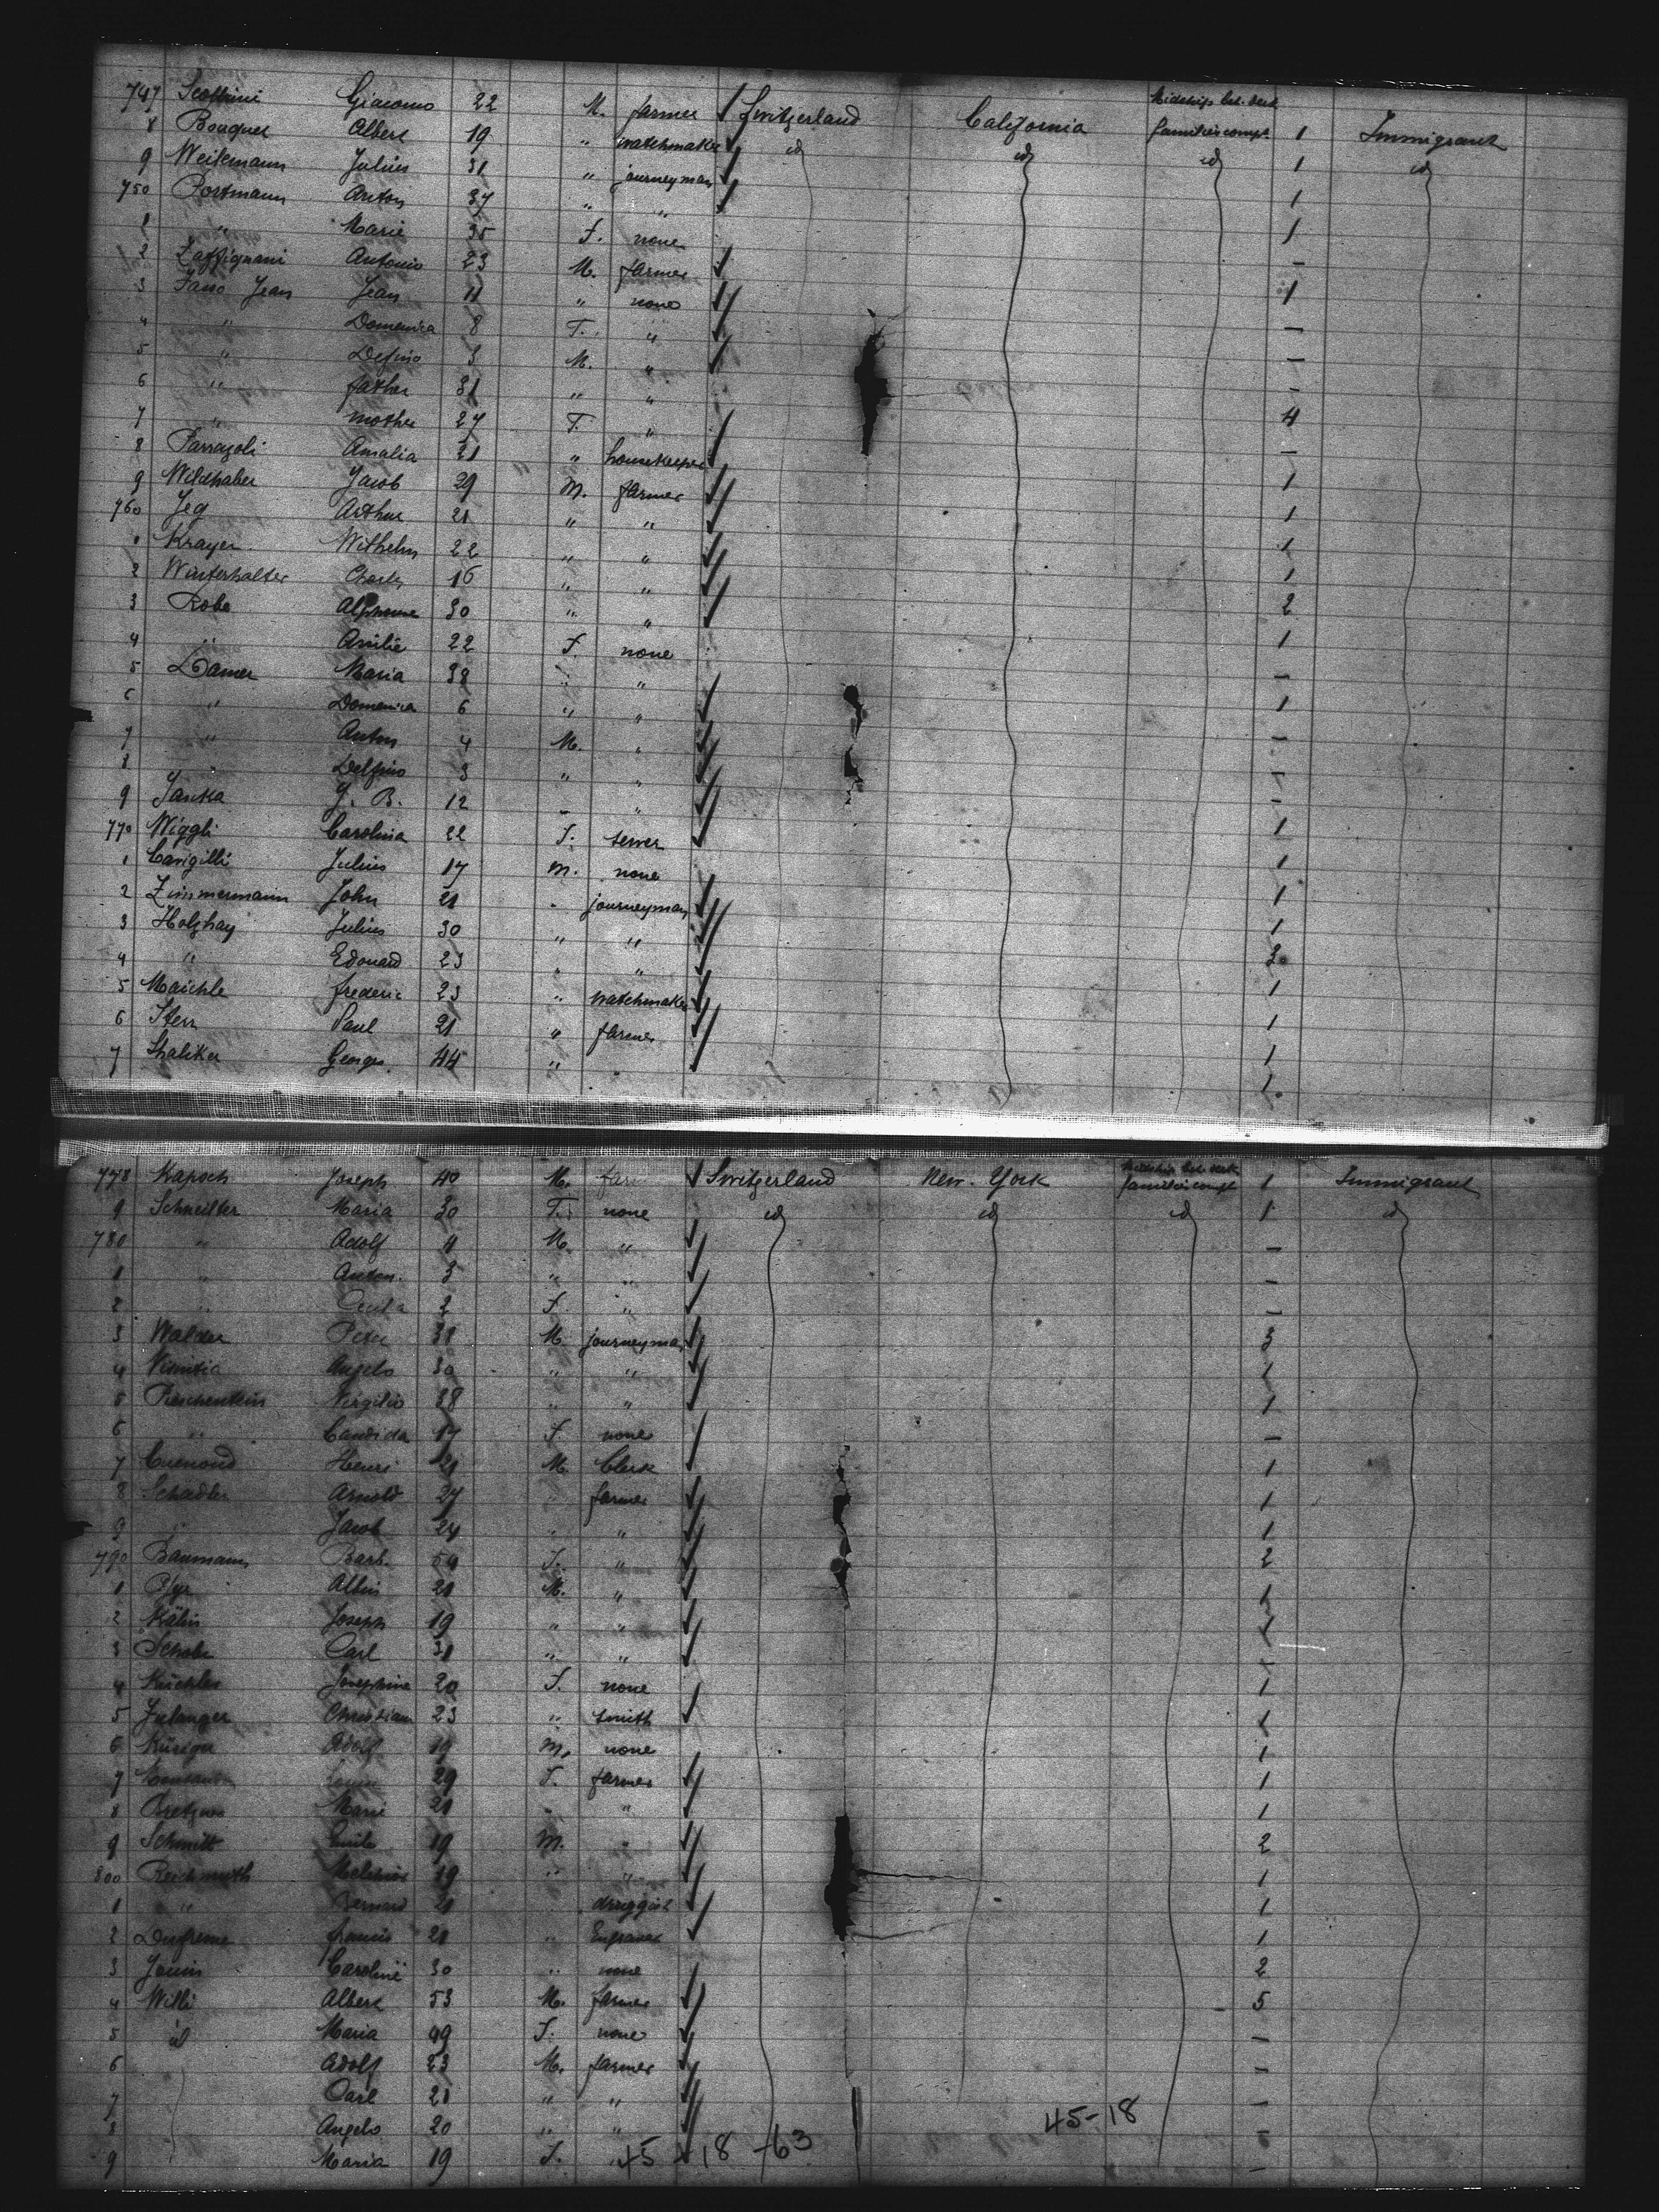 747 Scossini Giacomo 22 M. farmer Switzerland California Midship bet. deck families compt. 1 Immigrant
8 Bouquet Albert 19 " watchmaker id id id 1 id
9 Weikmann Julius 31 " journeyman 1
750 Portmann Anton 37 " " 1
1 " Marie 35 F. none 1
2 Zaffignani Antonio 23 M. farmer —
3 Jasso Jean Jean 11 " none 1
4 " Domenica 8 F. " —
5 " Defino 3 M. " —
6 " father 31 " " —
7 " mother 27 F. " 4
8 Parrazoli Amalia 21 " housekeeper —
9 Wildhaber Jacob 29 M. farmer 1
760 Jeg Arthur 21 " " 1
1 Krayer Wilhelm 22 " " 1
2 Winterhalter Charles 16 " " 1
3 Robe Alphonse 30 " " 2
4 " Amilie 22 F. none 1
5 Damer Maria 38 " " —
6 " Domenica 6 " " 1
7 " Anton 4 M. " —
8 " Delfino 3 " " —
9 Janka J. B. 12 " " —
770 Wiggli Carolina 22 F. sewer 1
1 Cavigilli Julius 17 M. none 1
2 Zimmermann John 21 " journeyman 1
3 Holzhay Julius 30 " " 1
4 " Edouard 23 " " 2
5 Maichle frederic 23 " watchmaker 1
6 Sterr Paul 21 " farmer 1
7 Shaliker Georges 44 " " 1
1
778 Kapoch Joseph 40 M. far Switzerland New-York Midship bet. deck families compt 1 Immigrant
9 Schneitter Maria 30 F. none id id id 1 id
780 " Adolf 4 M. " —
1 " Anton. 3 " " —
2 " Cecila 2 F. " —
3 Walker Peter 31 M journeyman 3
4 Angelo 30 " " 1
5 Virgilio 38 " " 1
6 " Candida 17 F none —
7 Cuenoud Henri 21 M Clerk 1
8 Schadler Arnold 27 " farmer 1
9 " Jacob 24 " " 1
790 Baumann Barb. 54 F. " 2
1 Albin 21 M. " 1
2 Kälin Joseph 19 " " 1
3 Carl 31 " " —
4 Küchler Josephine 20 F. none 1
5 Julanger Christian 23 " smith 1
6 Adolf 19 M. none 1
7 29 F. farmer 1
8 Marie 21 " " 1
9 Schmitt Emile 19 M. " 2
800 Reichmuth Melchior 19 " " 1
1 " Bernard 21 druggist 1
2 Dufresne francis 21 " Engraver 1
3 Jenni Caroline 30 " none 2
4 Willi Albert 53 M. farmer 5
5 id Maria 49 F. none —
6 Adolf 23 M. farmer —
7 Carl 21 " " —
8 Angelo 20 " " —
9 Maria 19 F. " —
45-18
45 18 -63